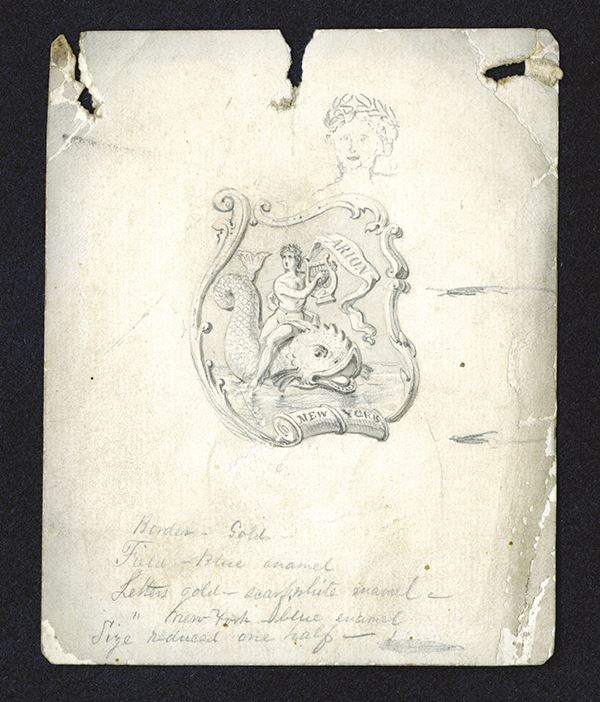 ARION
NEW YORK
Border - Gold -
Field - Blue enamel
Letters gold - scarf white enamel -
" New York blue enamel
Size reduced one half -